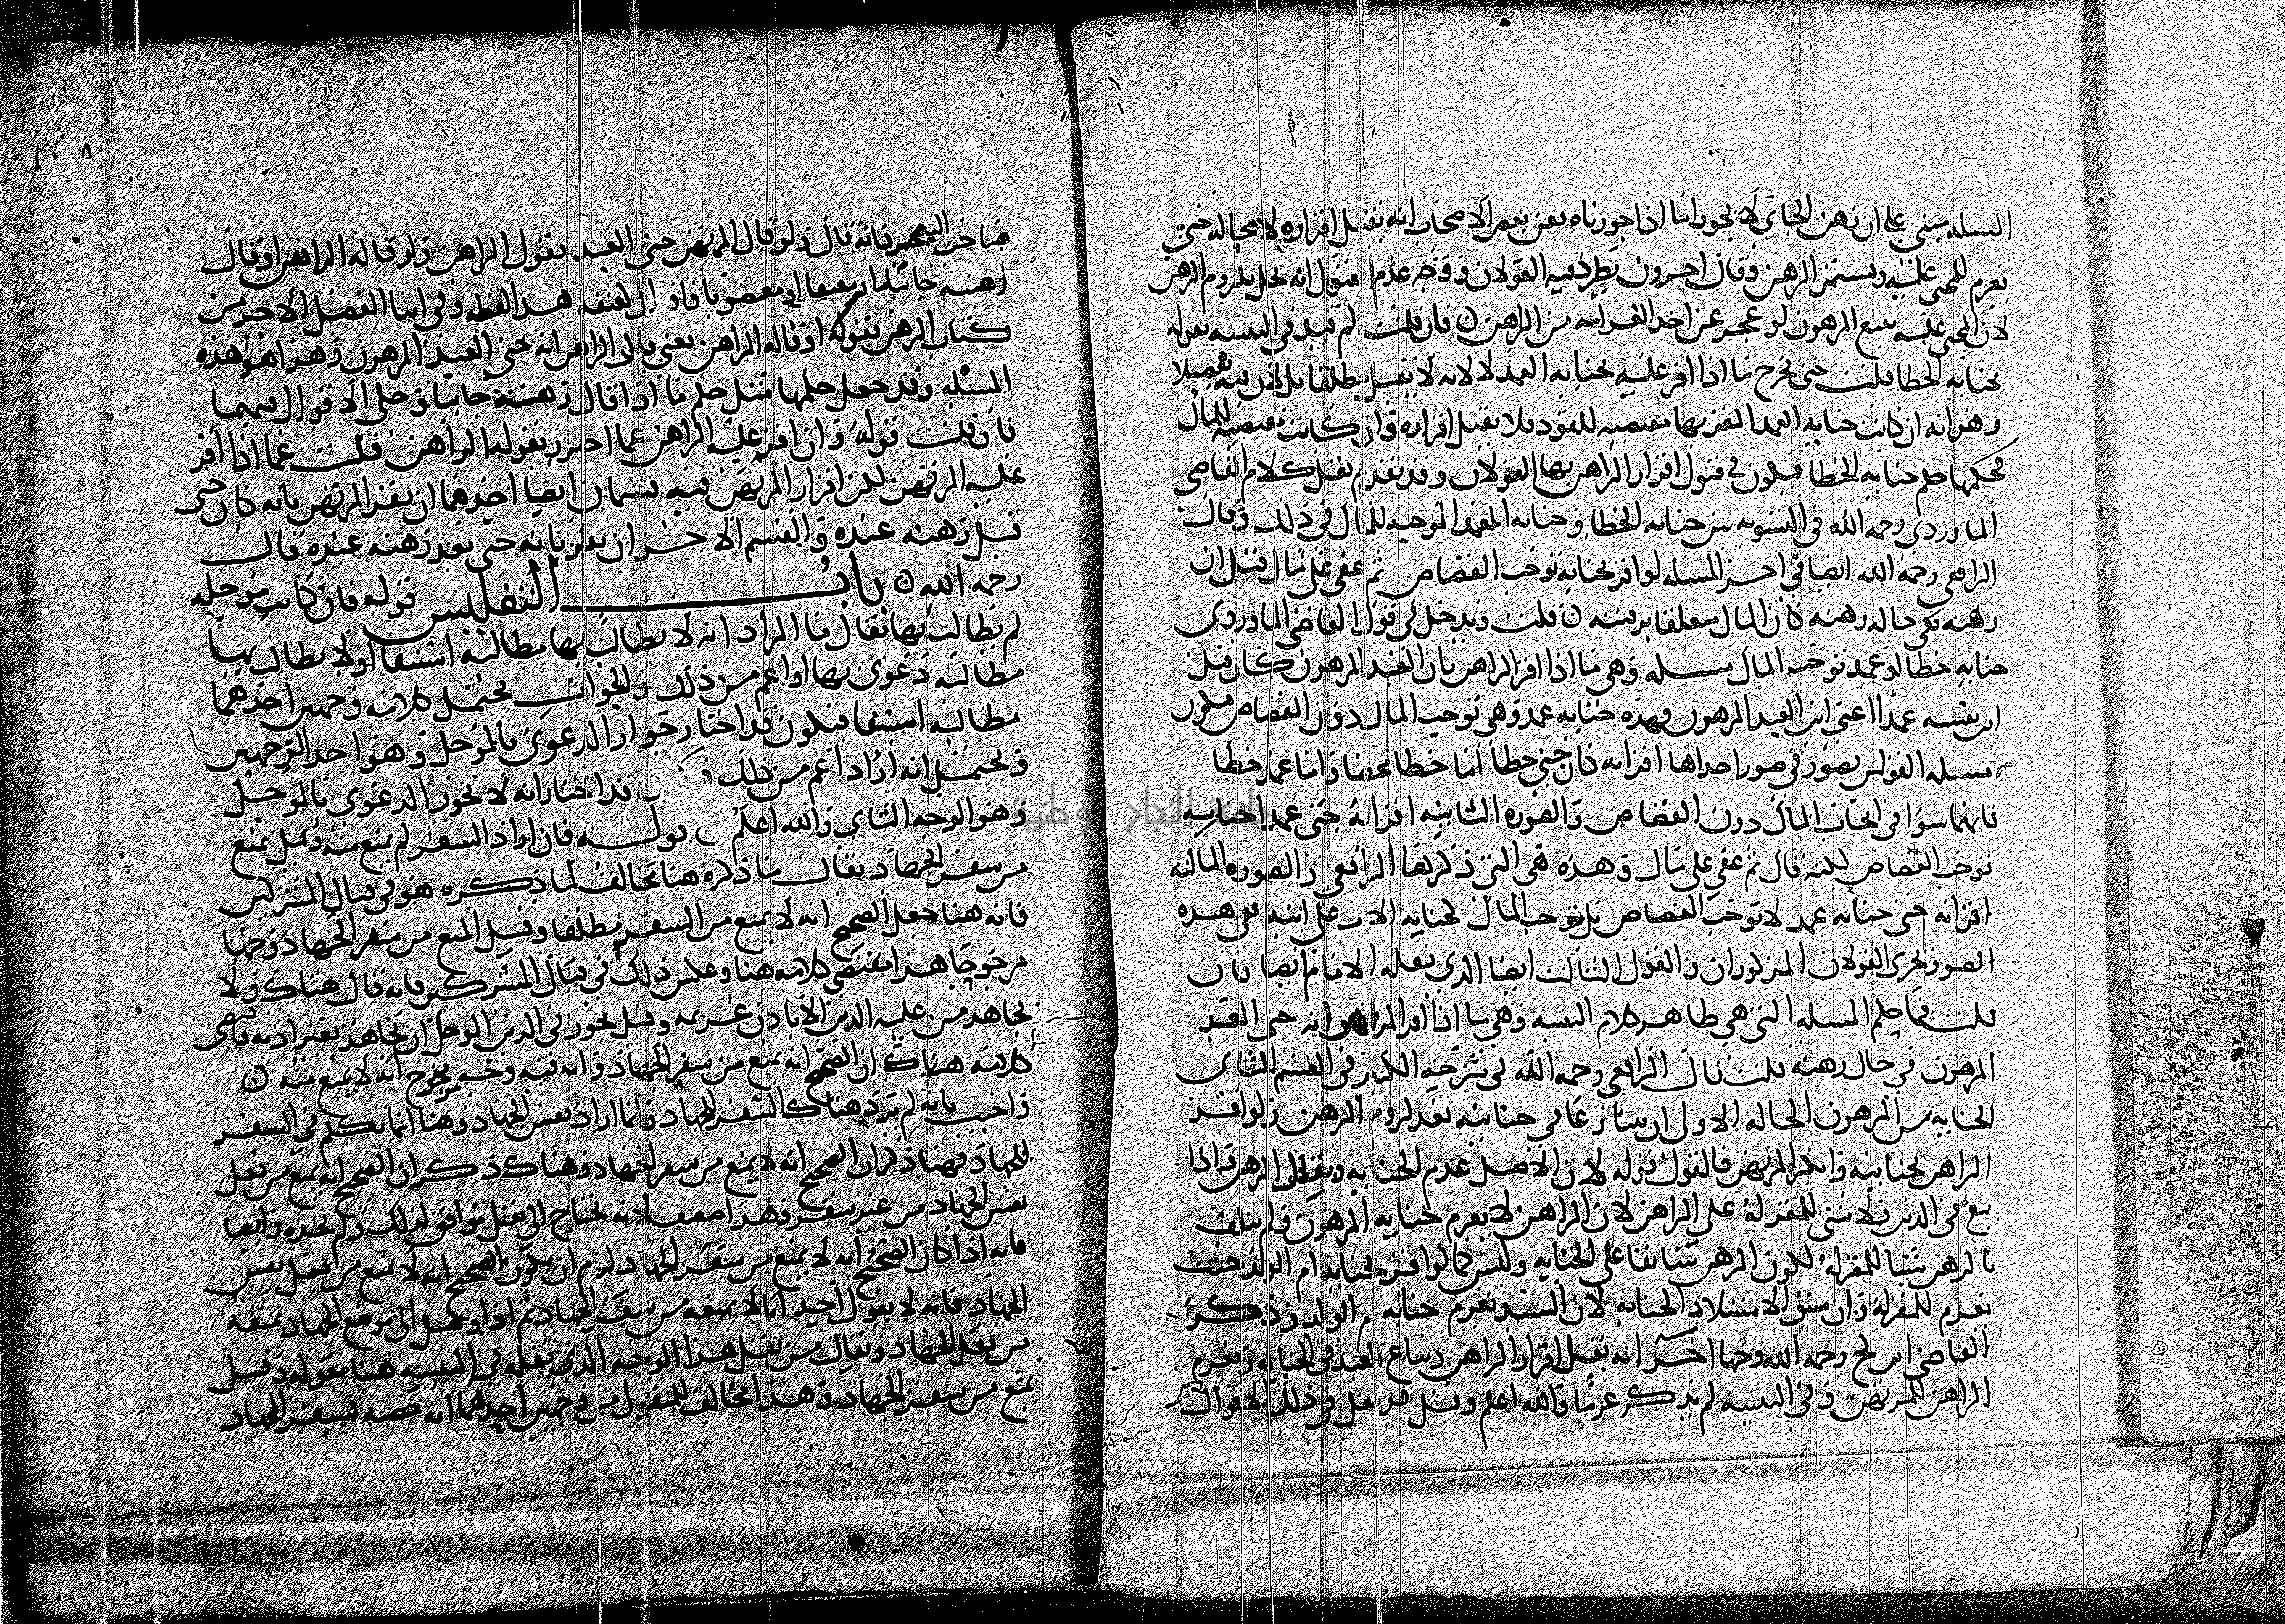 المسله مبني على ان رهن الجاني لا يجوز اما اذا جوزناه فعن بعض الاصحاب انه يقبل اقراره لا محاله حتى
يغرم للمجني عليه ويستمر الرهن وقال اخرون يطرد فيه القولان ووجه عدم القبول انه يحل بلزوم الرهن
لان المجني عليه يبيع المرهون لو عجز عن اخذ الغرامه من الراهن فان قلت لم قيد في التنبيه بقوله
بجنايه الخطا قلت حتى يخرج ما اذا اقر عليه بجنايه العمد لا لانه لا يقبل مطلقا بل لان فيه تفصيلا
وهو انه ان كانت جنايه العمد المقر بها مقتضيه للقود فلا يقبل اقراره وان كانت مقتضيه للمال
فحكمها حكم جنايه الخطا فيكون في قبول اقرار الراهن بها القولان وقد تقدم نقل كلام القاضي
الماوردي رحمه الله في التسويه بين جنايه الخطا وجنايه العمد الموجبه للمال في ذلك وقال
الرافعي رحمه الله ايضا في اخر المسله لو اقر بجنايه توجب القصاص ثم عفى على مال فقبل ان
رهنه في حاله رهنه كان المال متعلقا برقبته قلت ويدخل في قول القاضي الماوردي
جنايه خطا او عمد توجب المال مسله وهي ما اذا اقر الراهن بان العبد المرهون كان قتل
ابن نفسه عمدا اعني ابن العبد المرهون وهذه جنايه عمد وهي توجب المال دون القصاص فيكون
مسله القولين تصور في صور احداها اقر انه كان جنى خطا اما خطا محضا واما عمد خطا
فانهما سوا في ايجاب المال دون القصاص والصوره الثانيه اقر انه جنى عمدا جنايه
توجب القصاص لكنه قال ثم عفي على مال وهذه هي التي ذكرها الرافعي والصوره الثالثه
اقر انه جنى جنايه عمد لا توجب القصاص بل توجب المال كجنايه الاب على ابنه ففي هذه
الصور يجري القولان المذكوران والقول الثالث ايضا الذي نقله الامام ايضا فان
قلت فما حكم المسله التي هي ظاهر كلام التنبيه وهي ما اذا اقر الراهن انه جنى العبد
المرهون في حال رهنه قلت قال الرافعي رحمه الله في شرحيه الكبير في القسم الثاني
الجنايه من المرهون الحاله الاولى ان يتنازعا في جنايته بعد لزوم الرهن ولو اقر
الراهن بجنايته وانكر المرتهن فالقول قوله لان الاصل عدم الجنايه وبقا الرهن واذا
بيع في الدين فلا شي للمقر له على الراهن لان الراهن لا يغرم جنايه المرهون ولم يتلف
بالرهن شيا للمقر له لكون الرهن سابقا على الجنايه وليس كما لو اقر بجنايه ام الولد حيث
يغرم للمقر له وان سبق الاستيلاد الجنايه لان السيد يغرم جنايه ام الولد وذكر
القاضي ابن كج رحمه الله وجها اخر انه يقبل اقرار الراهن ويباع العبد في الجنايه ويغرم
الراهن للمرتهن وفي التنبيه لم يذكر غرما والله اعلم وقيل في ذلك الاقوال
صاحب فانه قال ولو قال المرتهن جنى العبد بقول الراهن ولو قاله الراهن او قال
رهنته جانيا او معيبا او مغصوبا فاقوال لفقه هذا لفظه وفي اثنا الفصل الاخير من
كتاب الرهن بقوله او قاله الراهن يعني قال الراهن انه جنى العبد المرهون وهذا هو هذه
المسله وقد جعل حكمها مثل حكم ما اذا قال رهنته جانيا وحكى الاقوال فيهما
فان قلت قوله وان اقر عليه الراهن عما احترز بقوله الراهن قلت عما اذا اقر
عليه المرتهن لكن اقرار المرتهن فيه قسمان ايضا احدهما ان يقر المرتهن بانه كان جنى
قبل رهنه عنده والقسم الاخر ان يقر بانه جنى بعد رهنه عنده قال
رحمه الله باب التفليس قوله فان كانت مؤجله
لم يطالب بها يقال ما المراد انه لا يطالب بها مطالبه استيفا او لا يطالب بها
مطالبه دعوى بها او اعم من ذلك والجواب يحتمل كلامه وجهين احدهما
مطالبه استيفا فيكون قد اختار جواز الدعوى بالمؤجل وهو احد الوجهين
ويحتمل انه اراد اعم من ذلك و قد اختار انه لا تجوز الدعوى بالمؤجل
وهو الوجه الثاني والله اعلم قوله فان اراد السفر لم يمنع منه وقيل يمنع
من سفر الجهاد يقال ما ذكره هنا مخالف لما ذكره هو في قتال المشركين
فانه هنا جعل الصحيح انه لا يمنع من السفر مطلقا وقيل المنع من سفر الجهاد وجها
مرجوحا هذا مقتضى كلامه هنا وعكس ذلك في قتال المشركين فانه قال هناك ولا
يجاهد من عليه الدين الا باذن غريمه وقيل يجوز في الدين المؤجل ان يجاهد بغير اذنه فاقتضى
كلامه هناك ان الصحيح انه يمنع من سفر الجهاد وانه فيه وجه مرجوح انه لا يمنع منه
واجيب بانه لم يرد هناك السفر للجهاد وانما اراد نفس الجهاد وهنا انما تكلم في السفر
للجهاد فهنا ذكر ان الصحيح انه لا يمنع من سفر الجهاد وهناك ذكر ان الصحيح انه يمنع من فعل
نفس الجهاد من غير سفر وهذا ضعف لانه يحتاج الى نقل موافق لذلك ولم نجده وايضا
فانه اذا كان الصحيح انه لا يمنع من سفر الجهاد لزم ان يكون الصحيح انه لا يمنع من فعل نفس
الجهاد فانه لا يقول احد انا لا نمنعه من سفر الجهاد ثم اذا وصل الى موضع الجهاد نمنعه
من فعل الجهاد ويقال من نقل هذا الوجه الذي نقله في التنبيه هنا بقوله وقيل
يمنع من سفر الجهاد وهذا مخالف للمنقول من وجهين احدهما انه خصه بسفر الجهاد